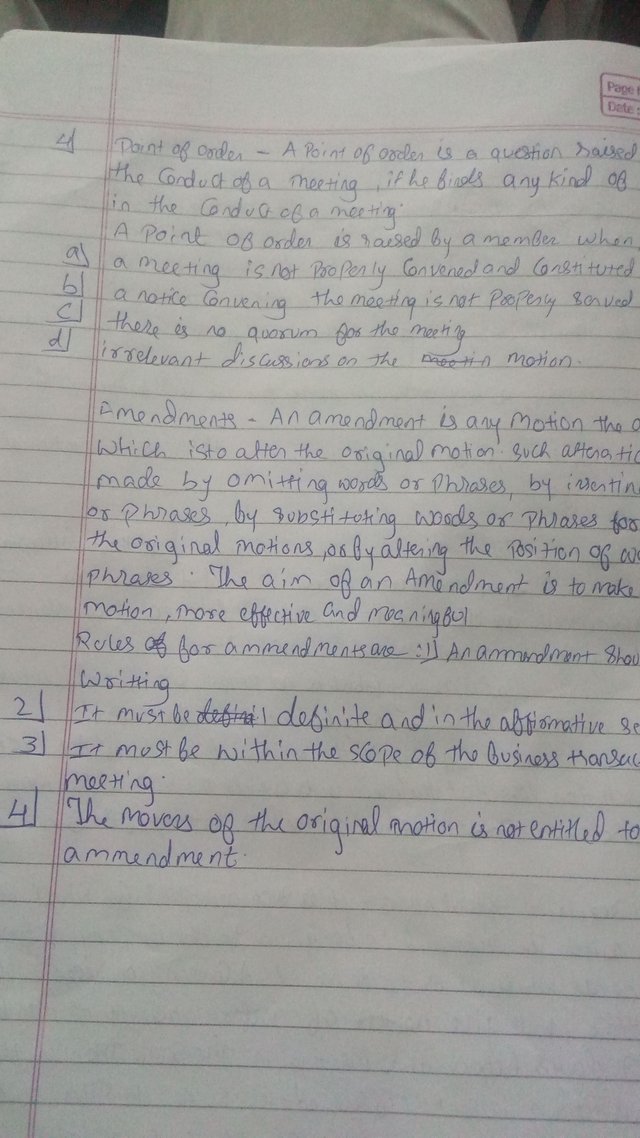 Page
Date:
4] Point of order - A Point of order is a question raised
the Conduct of a meeting, if he finds any kind of
in the Conduct of a meeting.
A Point of order is raised by a member when
a] a meeting is not Properly Convened and Constituted
b] a notice Convening the meeting is not Properly Served
c] there is no quorum for the meeting
d] irrelevant discussions on the motion.
Amendments - An amendment is any motion the
which is to alter the original motion. Such
made by omitting words or Phrases, by
or Phrases, by substituting words or Phrases for
the original motions, or by altering the Position of
phrases. The aim of an Amendment is to make
motion, more effective and meaningful
Rules for ammendments are :1] An ammendment
Writting
2] It must be definite and in the affirmative
3] It must be within the scope of the business
meeting.
4] The movers of the original motion is not entitled to
ammendment.